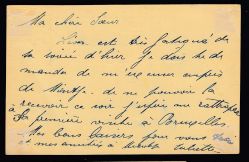 Ma chère Sœur
Léon est très fatigué de
la soirée d'hier. Je dois de
mande de m'excuser auprès
de de ne pouvoir la
recevoir ce soir j'espère me rattraper
la première visite à Bruxelles
Mes bons baisers pour vous
et mes amitiés à Juliette